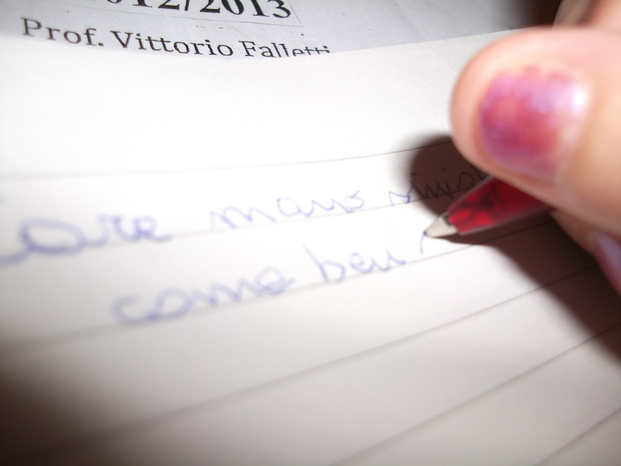 2012/2013
Prof. Vittorio Falletti
mano
come ben